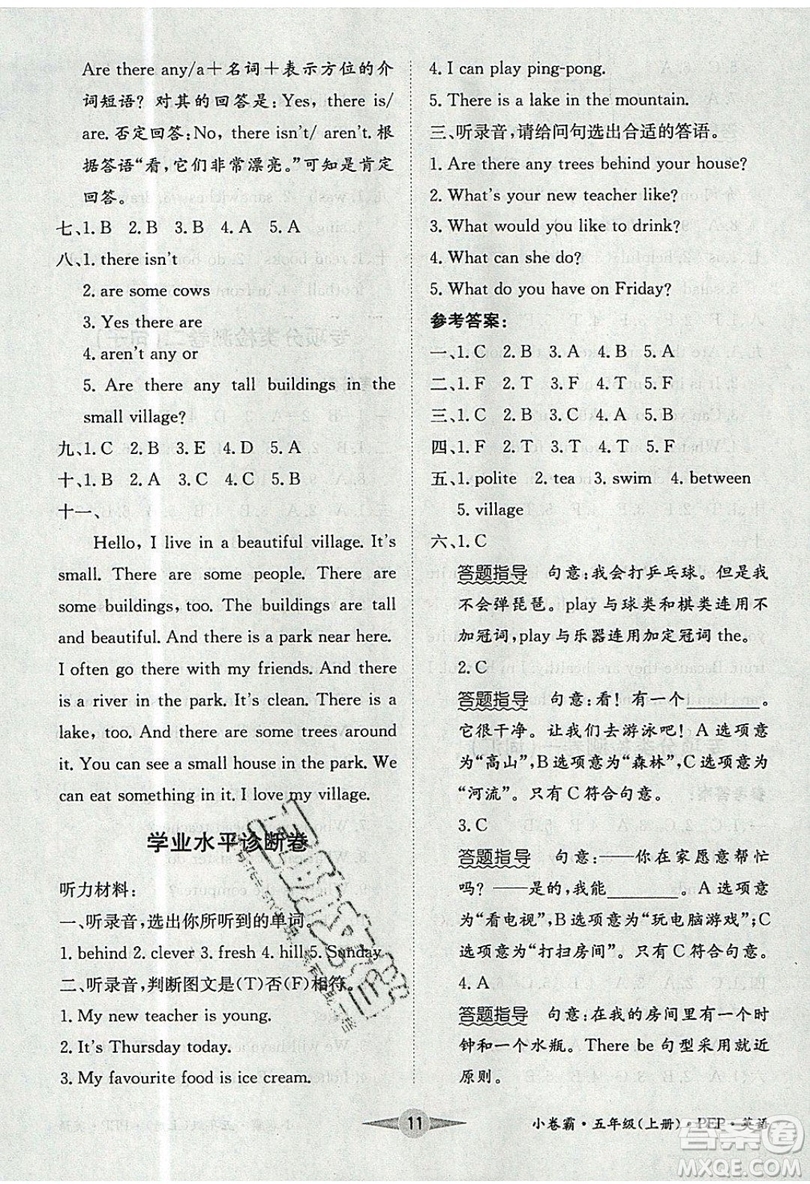 Are there any/a＋名词＋表示方位的介
词短语？对其的回答是：Yes, there is/
are. 否定回答：No, there isn't/ aren't. 根
据答语“看，它们非常漂亮。”可知是肯定
回答。
七、1. B 2. B 3. B 4. A 5. A
八、1. there isn't
2. are some cows
3. Yes there are
4. aren't any or
5. Are there any tall buildings in the
small village?
九、1. C 2. B 3. E 4. D 5. A
十、1. B 2. C 3. B 4. C 5. A
十一、
Hello, I live in a beautiful village. It's
small. There are some people. There are
some buildings, too. The buildings are tall
and beautiful. And there is a park near here.
I often go there with my friends. And there
is a river in the park. It's clean. There is a
lake, too. There are some trees around
lake. You can see a small house in the park. We
can eat something in it. I love my village.
学业水平诊断卷
听力材料：
一、听录音，选出你所听到的单词。
1. behind 2. clever 3. fresh 4. hill 5. Sunday
二、听录音，判断图文是(T)否(F)相符。
1. My new teacher is young.
2. It's Thursday today.
3. My favourite food is ice cream.
4. I can play ping-pong.
5. There is a lake in the mountain.
三、听录音，请给问句选出合适的答语。
1. Are there any trees behind your house?
2. What's your new teacher like?
3. What would you like to drink?
4. What can she do?
5. What do you have on Friday?
参考答案：
一、1. C 2. B 3. A 4. B 5. A
二、1. F 2. T 3. F 4. T 5. T
三、1. C 2. B 3. A 4. C 5. A
四、1. F 2. F 3. T 4. T 5. F
五、1. polite 2. tea 3. swim 4. between
5. village
六、1. C
答题指导 句意：我会打乒乓球。但是我
不会弹琵琶。play 与球类和棋类连用不
加冠词，play 与乐器连用加定冠词 the。
2. C
答题指导 句意：看！有一个________。
它很干净。让我们去游泳吧！A 选项意
为“高山”，B 选项意为“森林”，C 选项意
为“河流”。只有 C 符合句意。
3. C
答题指导 句意：——你在家愿意帮忙
吗？——是的，我能________。A 选项意
为“看电视”，B 选项意为“玩电脑游戏”；C
选项意为“打扫房间”。只有 C 符合句意。
4. A
答题指导 句意：在我的房间里有一个时
钟和一个水瓶。There be 句型采用就近
原则。
11
小卷霸·五年级(上册)·PEP·英语
答案圈
MXQE.COM